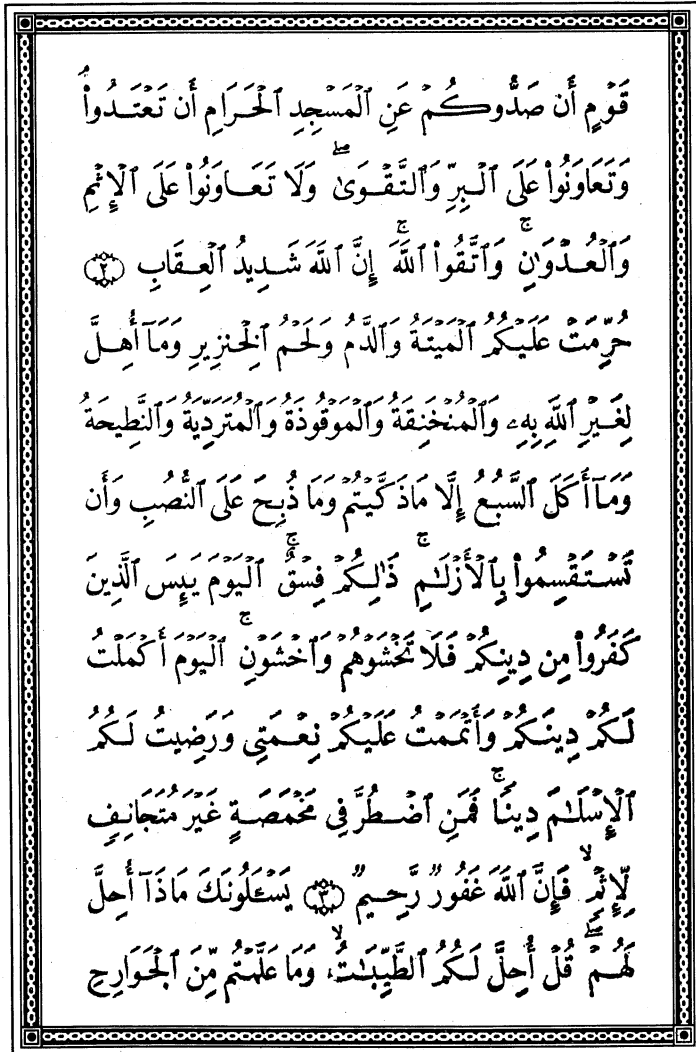 قَوْمٍ أَن صَدُّوكُمْ عَنِ ٱلْمَسْجِدِ ٱلْحَرَامِ أَن تَعْتَدُواْۘ
وَتَعَاوَنُواْ عَلَى ٱلْبِرِّ وَٱلتَّقْوَىٰۖ وَلَا تَعَاوَنُواْ عَلَى ٱلْإِثْمِ
وَٱلْعُدْوَٰنِۚ وَٱتَّقُواْ ٱللَّهَۚ إِنَّ ٱللَّهَ شَدِيدُ ٱلْعِقَابِ ۝٢
حُرِّمَتْ عَلَيْكُمُ ٱلْمَيْتَةُ وَٱلدَّمُ وَلَحْمُ ٱلْخِنزِيرِ وَمَآ أُهِلَّ
لِغَيْرِ ٱللَّهِ بِهِۦ وَٱلْمُنْخَنِقَةُ وَٱلْمَوْقُوذَةُ وَٱلْمُتَرَدِّيَةُ وَٱلنَّطِيحَةُ
وَمَآ أَكَلَ ٱلسَّبُعُ إِلَّا مَا ذَكَّيْتُمْ وَمَا ذُبِحَ عَلَى ٱلنُّصُبِ وَأَن
تَسْتَقْسِمُواْ بِٱلْأَزْلَٰمِۚ ذَٰلِكُمْ فِسْقٌۚ ٱلْيَوْمَ يَئِسَ ٱلَّذِينَ
كَفَرُواْ مِن دِينِكُمْ فَلَا تَخْشَوْهُمْ وَٱخْشَوْنِۚ ٱلْيَوْمَ أَكْمَلْتُ
لَكُمْ دِينَكُمْ وَأَتْمَمْتُ عَلَيْكُمْ نِعْمَتِي وَرَضِيتُ لَكُمُ
ٱلْإِسْلَٰمَ دِينًاۚ فَمَنِ ٱضْطُرَّ فِي مَخْمَصَةٍ غَيْرَ مُتَجَانِفٍ
لِّإِثْمٍۙ فَإِنَّ ٱللَّهَ غَفُورٌ رَّحِيمٌ ۝٣ يَسْـَٔلُونَكَ مَاذَآ أُحِلَّ
لَهُمْۖ قُلْ أُحِلَّ لَكُمُ ٱلطَّيِّبَٰتُۙ وَمَا عَلَّمْتُم مِّنَ ٱلْجَوَارِحِ